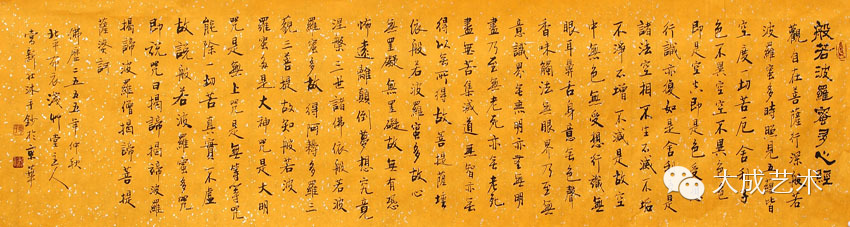 般若波羅蜜多心經
觀自在菩薩行深般若
波羅蜜多時照見五蘊皆
空度一切苦厄舍利子
色不異空空不異色色
即是空空即是色受想
行識亦復如是舍利子是
諸法空相不生不滅不垢
不淨不增不減是故空
中無色無受想行識無
眼耳鼻舌身意無色聲
香味觸法無眼界乃至無
意識界無無明亦無無明
盡乃至無老死亦無老死
盡無苦集滅道無智亦無
得以無所得故菩提薩埵
依般若波羅蜜多故心
無罣礙無罣礙故無有恐
怖遠離顛倒夢想究竟
涅槃三世諸佛依般若波
羅蜜多故得阿耨多羅三
藐三菩提故知般若波
羅蜜多是大神咒是大明
咒是無上咒是無等等咒
能除一切苦真實不虛
故說般若波羅蜜多咒
即說咒曰揭諦揭諦波羅
揭諦波羅僧揭諦菩提
薩婆訶
佛曆二五五五年仲秋
北平布衣淺草堂主人
常新北沐手鈔於京華
大成艺术